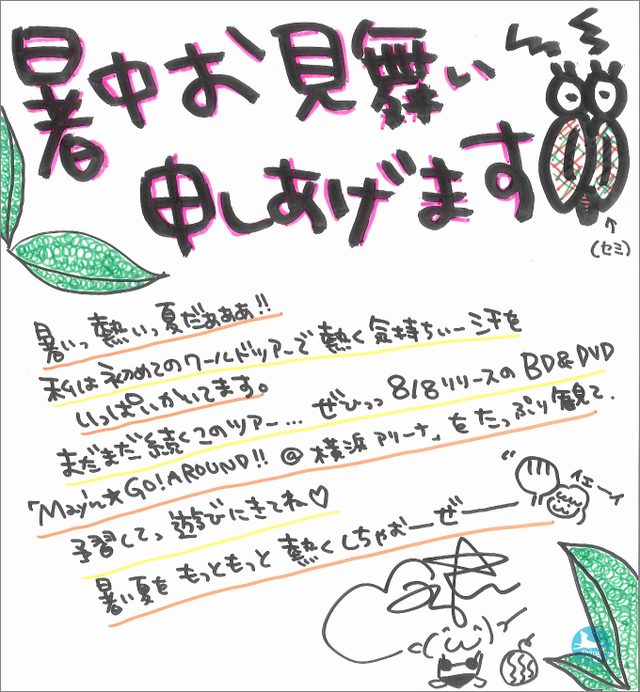 暑中お見舞い
申しあげます
(セミ)
暑いっ熱いっ夏だぁぁぁ!!
私は初めてのワールドツアーで熱く気持ちぃー汗を
いっぱいかいてます。
まだまだ続くこのツアー…ぜひっっ8/8リリースのBD&DVD
「May'n★GO!AROUND!!@横浜アリーナ」をたっぷり観て、
予習してっ遊びにきてね♡
イェーイ
暑い夏をもっともっと熱くしちゃおーぜー